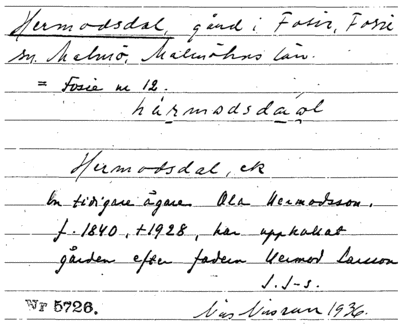 Hermodsdal, gård i Fosie, Fosie
sn, Malmö, Malmöhus län.
= Fosie nr 12.
härmodsdaạl
Hermodsdal, ek
En tidigare ägare Ola Hermodsson,
f. 1840, †1928, har uppkallat
gården efter fadern Hermod Larsson
J. J-s.
Nr 5726. 1936.